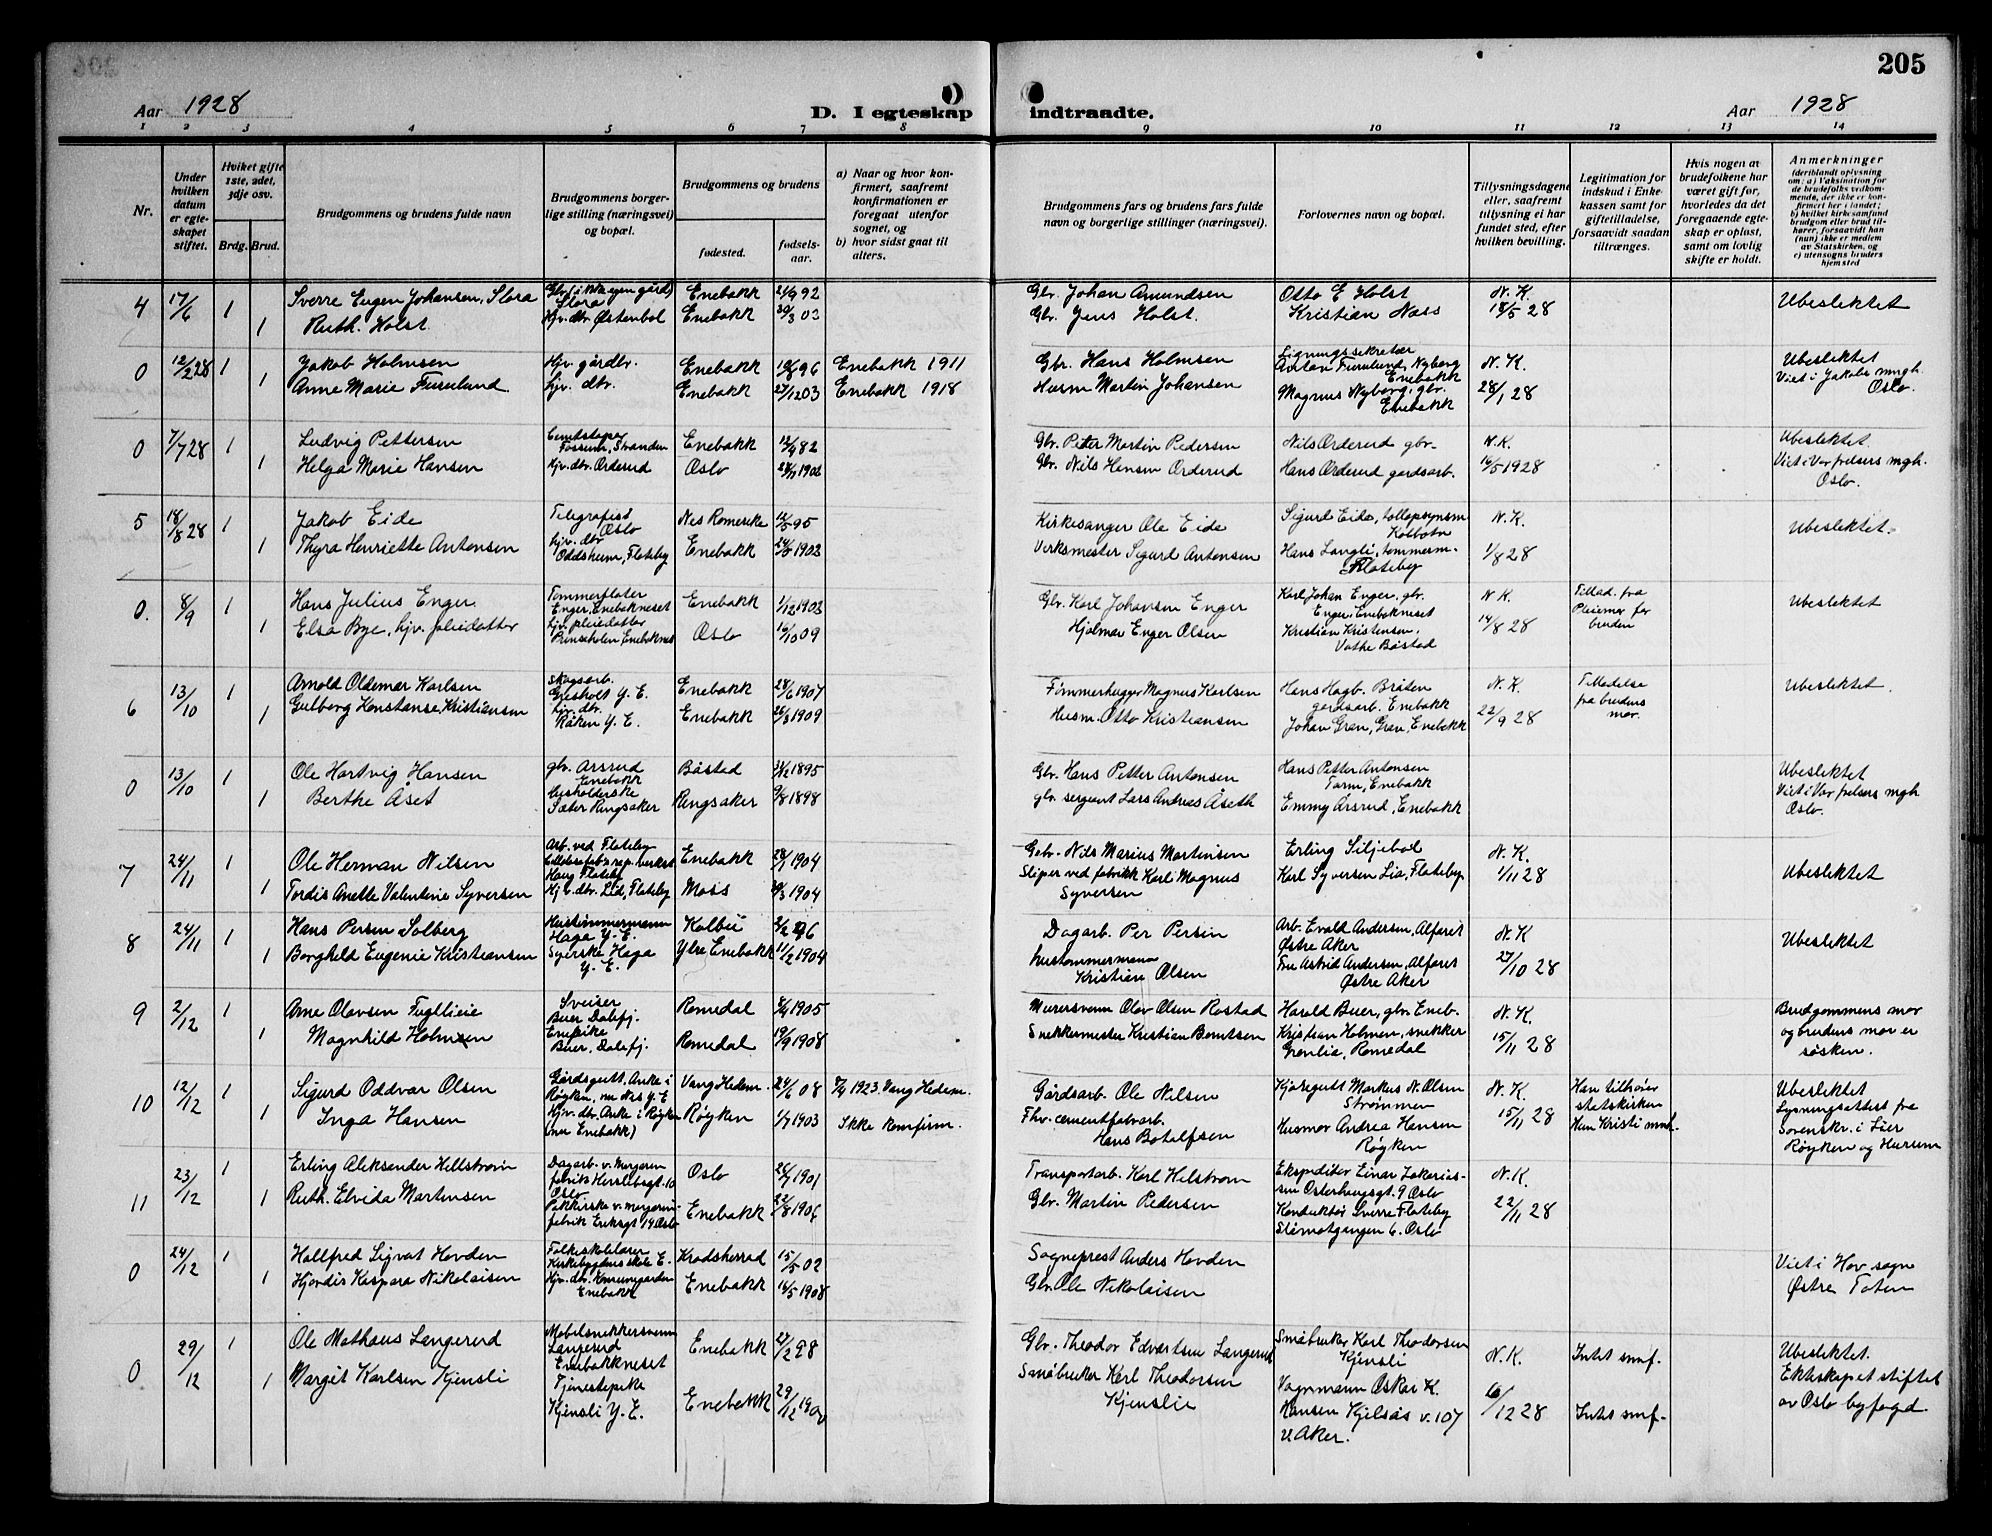 205
Aar 1928
D. I egteskap indtraadte.
Aar 1928
1 2 3 4 5 6 7 8 9 10 11 12 13 14
Nr.
Under hvilken datum er egte-skapet stiftet.
Hvilket gifte 1ste, 2det, 3dje osv.
Brdg. Brud.
Brudgommens og brudens fulde navn
Brudgommens borger-lige stilling (næringsvei) og bopæl.
Brudgommens og brudens
fødested. fødsels-aar.
a) Naar og hvor kon-firmert, saafremt konfirmationen er foregaat utenfor sognet, og
b) hvor sidst gaat til alters.
Brudgommens fars og brudens fars fulde navn og borgerlige stillinger (næringsvei).
Forlovernes navn og bopæl.
Tillysningsdagene eller, saafremt tillysning ei har fundet sted, efter hvilken bevilling.
Legitimation for indskud i Enke-kassen samt for giftetilladelse, forsaavidt saadan tiltrænges.
Hvis nogen av brudefolkene har været gift før, hvorledes da det foregaaende egte-skap er opløst, samt om lovlig skifte er holdt.
Anmerkninger (deriblandt oplysning om: a) Vaksination for de brudefolks vedkom-mende, der ikke er kon-firmert her i landet; b) hvilket kirkesamfund brudgom eller brud til-hører, forsaavidt han (hun) ikke er medlem av Statskirken, og c) utensogns bruders hjemsted
4 17/6 1 Sverre Eugen Johansen, Slora Slora Enebakk 92 Gbr. Johan Amundsen Otto E Holst N. K. Ubeslektet
1 Ruth Holst Hjv. dtr Østenbøl Enebakk 03 Gbr. Jens Holst. Kristian Næss 18/5 28
0 12/2 28 1 Jakob Holmsen Hjv. gårdbr. Enebakk 96 Enebakk 1911 Gbr. Hans Holmsen Lignungssekretær Anton Furulund, Nyborg Enebakk N. K. Ubeslektet
1 Anne Marie Furulund hjv. dtr. Enebakk 27/12 03 Enebakk 1918 Husm Martin Johansen Magnus Nyborg, gbr. Enebakk 28/1 28 Viet i Jakobs mngh. Oslo.
0 7/7 28 1 Ludvig Pettersen Fossum, Stranden Enebakk 82 Gbr. Peter Martin Pedersen Nils Orderud gbr. N. K. Ubeslektet.
1 Helga Marie Hansen Hjv. dtr. Orderud Oslo Gbr. Nils Hansen Orderud Hans Orderud gardsarb. 16/5 1928 Viet i Vor frelsers mgh. Oslo.
5 18/8 28 1 Jakob Eide Telegrafist Oslo Nes Romerike 95 Kirkesanger Ole Eide Sigurd Eide, tollopsynsm Kolbotn N. K. Ubeslektet.
1 Thyra Henriette Antonsen hjv. dtr Oddsheim, Flateby Enebakk 1903 Verksmester Sigurd Antonsen Hans Langli, tømmerm. Flateby 1/8 28
0. 8/9 1 Hans Julius Enger. Tømmerfløter Enger, Enebakneset Enebakk 1/12 1903 Gbr. Karl Johansen Enger Karl Johan Enger, gbr. Enger, Enebakneset N. K. Tillad. fra Pleiemor for bruden Ubeslektet
1 Elsa Bye, hjv. pleiedatter hjv. pleiedatter Enebaknes Oslo 16/10 09 Hjalmar Enger Olsen Kristian Kristensen, Båstad 14/8 28
6 13/10 1 Arnold Oldemar Karlsen Skogsarb. Gresholt Y. E. Enebakk 28/6 1907 Tømmerhugger Magnus Karlsen Hans Hagb. Bråten gardsarb. Enebakk N. K. Tilladelse fra brudens mor. Ubeslektet.
1 Gulborg Konstanse Kristiansen hjv. dtr. Råken Y. E. Enebakk 1909 Husm. Otto Kristiansen Johan Gran, Gran, Enebakk 22/9 28
0 13/10 1 Ole Hartvig Hansen gbr. Årsrud Enebakk Båstad 1895 Gbr. Hans Petter Antonsen Hans Petter Antonsen Enebakk Ubeslektet
1 Berthe Åset Sæter Ringsaker Ringsaker 9/8 1898 gbr. sergeant Lars Andreas Åseth Emmy Årsrud, Enebakk Viet i Vor frelsers mgh Oslo.
7 24/11 1 Ole Herman Nilsen Arb. ved Flateby Haug Flateby Enebakk 28/1 1904 Gbr. Nils Marius Martinsen Erling Siljebøl N. K. Ubeslektet
1 Tordis Anette Valentine Syversen Hjv. dtr. Lid, Flateby Moss 1904 Sliper ved fabrikk Karl Magnus Syversen Karl Syversen Lia, Flateby. 1/11 28
8 24/11 1 Hans Persen Solberg Hustømmermann Haga Y. E. Kolbu Dagarb. Per Persen Arb. Evald Andersen, Alfaset Østre Aker N. K Ubeslektet
1 Borghild Eugenie Kristiansen Syerske Haga Y. E. Ytre Enebakk 11/2 1904 hustømmermann Kristian Olsen Fru Astrid Andersen, Alfaset Østre Aker 27/10 28
9 2/12 1 Arne Olavsen Fugllieie Sveiser Buer Dalefj. Romedal 1905 Murersvenn Olav Olsen Rostad Harald Buer, gbr. Eneb. N. K. Brudgommens mor
1 Magnhild Holmen Buer, Dalefj. Romedal 19/9 1908 Snekkermester Kristian Berntsen Kristian Holmen, snekker Grønlia, Romedal 15/11 28 og brudens mor er søsken.
10 12/12 1 Sigurd Oddvar Olsen Gårdsgutt, Anke i Røyken, nu Nes Y. E Vang Hedem. 24/6 08 1923. Vang Hedem. Gårdsarb. Ole Nilsen Markus N. Olsen Strømmen N. K. Han tilhører statskirken Ubeslektet
1 Inga Hansen Hjv. dtr. Anke i Røyken (nu Enebakk) Røyken 1/7 1903 Ikke konfirm. Fhv. cementfabarb. Hans Botolfsen Husmor Andrea Hansen Røyken 15/11 28 Hun Kristi mnh. Lysningsattest fra Sorenskr. i Lier Røyken og Hurum
11 23/12 1 Erling Aleksander Hellstrøm Dagarb. v. margarin fabrik Herslebsgt. 10 Oslo Oslo 1901 Transportarb. Karl Helstrøm Ekspeditør Einar Zakarias-sen Osterhausgt. 9 Oslo N. K.
1 Ruth Elvida Martinsen Pakkerske v. margarin-fabrik Eriksgt 19 Oslo Enebakk 22/8 1904 Gbr. Martin Pedersen Konduktør Sverre Flateby Stemotgangen 6. Oslo 22/11 28
0 24/12 1 Hallfred Sigvat Hovden Folkeskolelærer Kirkebygdens skole E. Krødsherrad 15/5 02 Sogneprest Anders Hovden Viet i Hov sogn
1 Hjørdis Kaspara Nikolaisen Hjv. dtr. Enebakk Enebakk 16/5 1908 Gbr. Ole Nikolaisen Østre Toten
0 29/12 1 Ole Mathæus Langerud Møbelsnekkersvenn Langerud Enebakkneset Enebakk 27/2 98 Gbr. Theodor Edvartsen Langerud Småbruker Karl Theodorsen Kjensli N. K. Intet smf. Ubeslektet.
1 Margit Karlsen Kjensli Tjenestepike Kjensli Y. E. Enebakk 29/12 Småbruker Karl Theodorsen Kjenslie Vognmann Oskar K. Hansen Kjelsås v. 107 V. Aker. 6/12 28 Intet smf. Ekteskapet stiftet av Oslo byfogd.